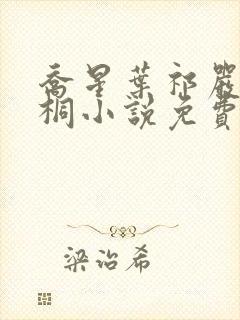 喬星葉祁嚴
桐小說免費
梁治希